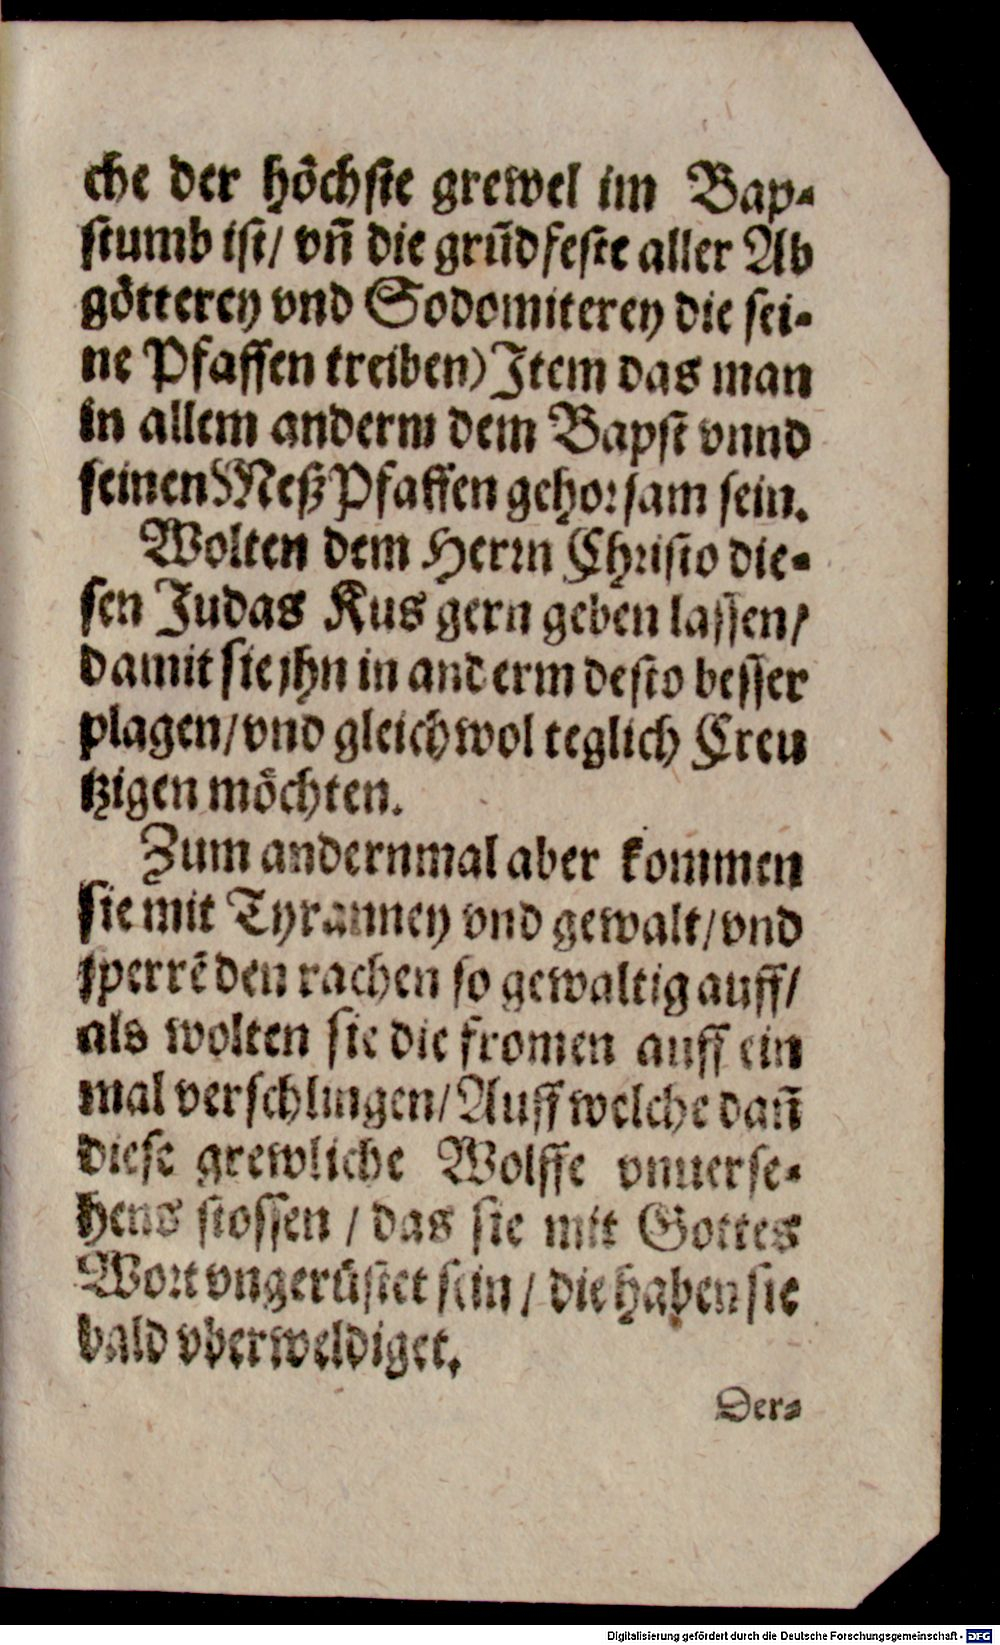 che der höchste grewel im Bap-
stumb ist/ vñ die grũdfeste aller Ab
götterey vnd Sodomiterey die sei-
ne Pfaffen treiben) Item das man
in allem anderm dem Bapst vnnd
seinen Meß Pfaffen gehorsam sein.
Wolten dem Herrn Christo die-
sen Judas Kus gern geben lassen/
damit sie jhn in anderm desto besser
plagen/ vnd gleichwol teglich Creu
tzigen möchten.
Zum andernmal aber kommen
sie mit Tyranney vnd gewalt/ vnd
sperrẽ den rachen so gewaltig auff/
als wolten sie die fromen auff ein
mal verschlingen/ Auff welche dañ
diese grewliche Wolffe vnuerse-
hens stossen / das sie mit Gottes
Wort vngerüstet sein / die haben sie
bald vberweldiget.
Der-
Digitalisierung gefördert durch die Deutsche Forschungsgemeinschaft - DFG